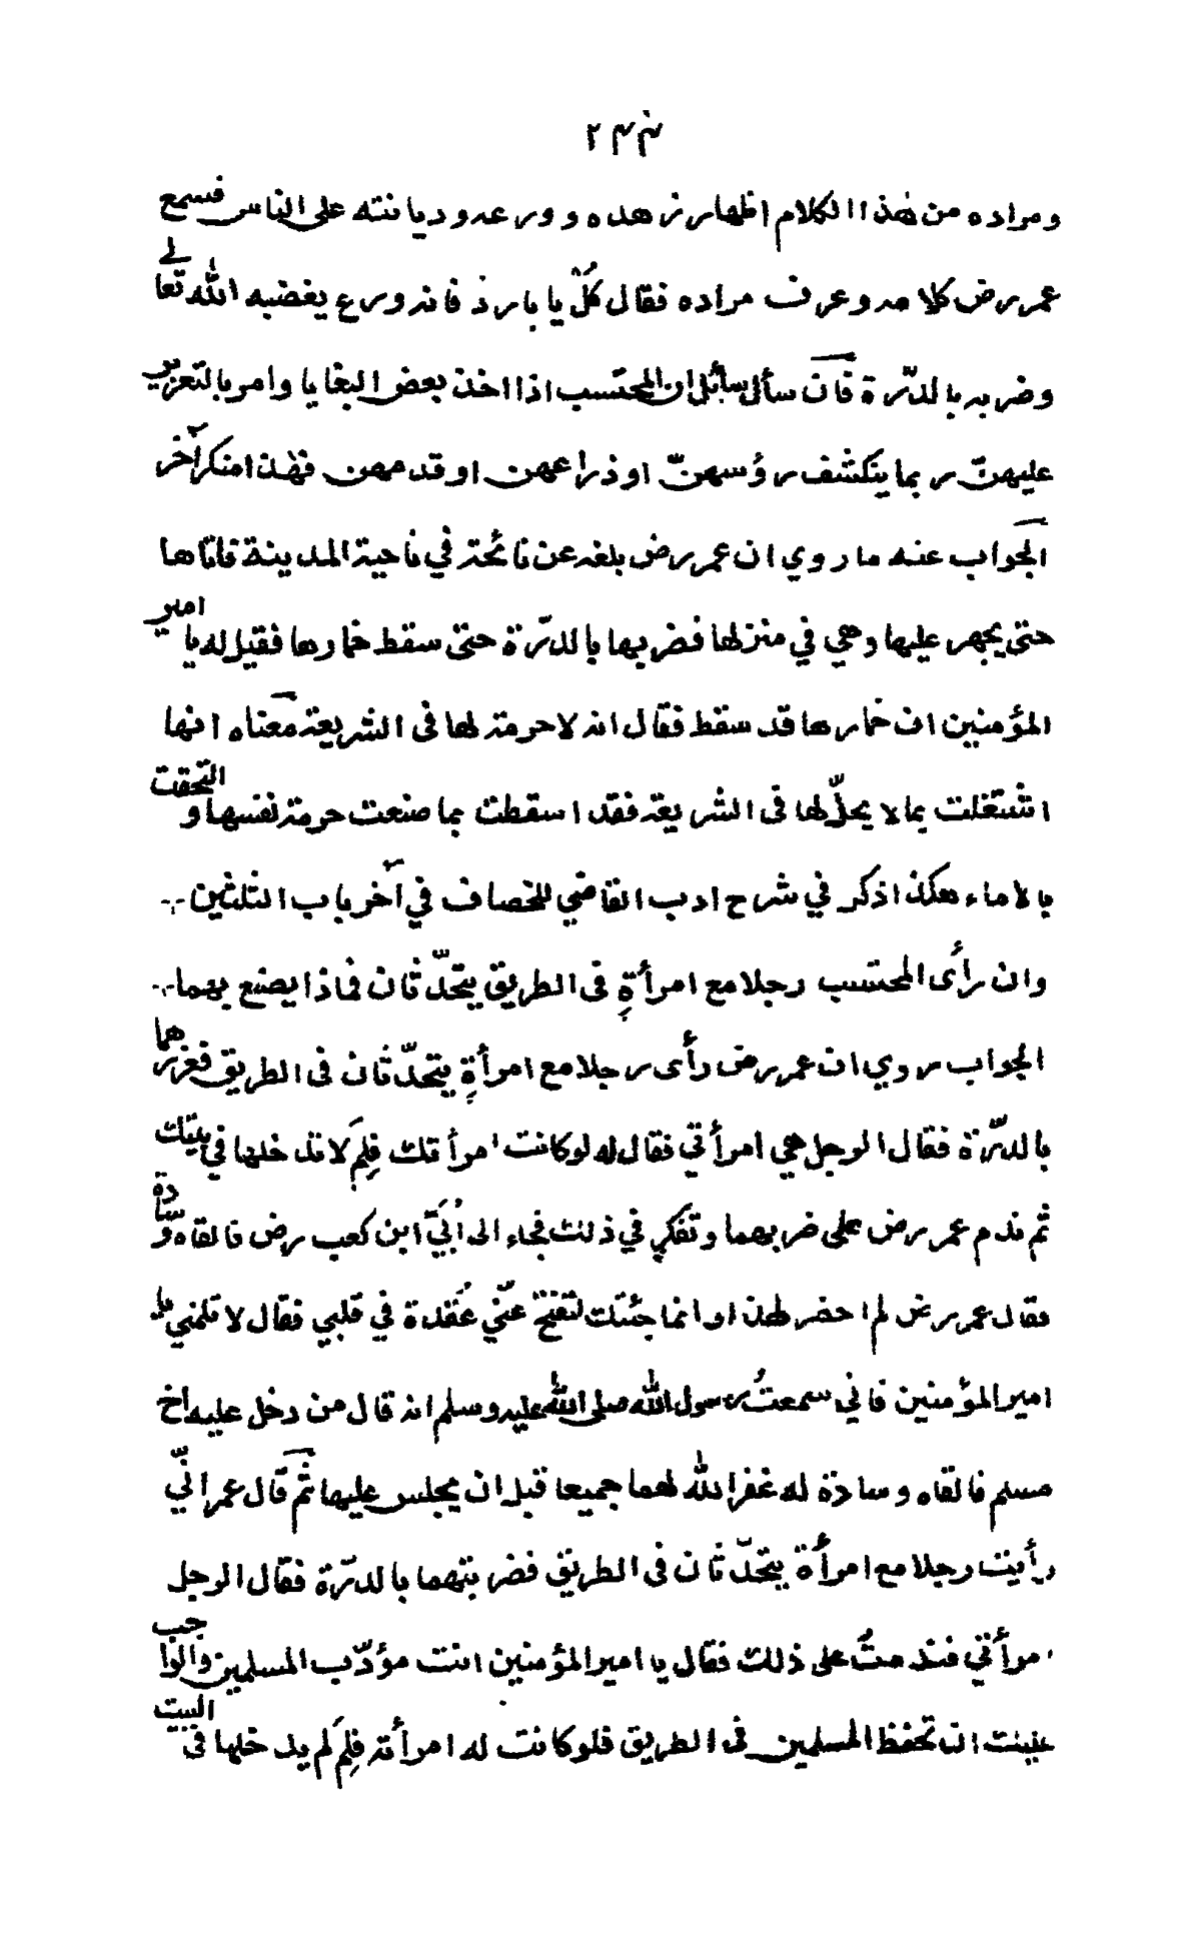 ٢٣٣
ومراده من هٰذا الكلام اظهار زهده وورعه وديانته على الناس فسمع
عمر رض كلامه وعرف مراده فقال كُلْ يا بارد فانه ورع يغضبه اللّٰه تعالى
وضربه بالدرّة فان سأل سائل ان المحتسب اذا اخذ بعض البغايا وامر بالتعزير
عليهنّ ربما ينكشف رؤسهنّ او ذراعهن او قدمهن فهٰذا منكر آخر
الجواب عنه ما روي ان عمر رض بلغه عن نائحة في ناحية المدينة فاتاها
حتى يجهر عليها وهي في منزلها فضربها بالدرّة حتى سقط خمارها فقيل له يا امير
المؤمنين ان خمارها قد سقط فقال انه لا حرمة لها فى الشريعة معناه انها
اشتغلت بما لا يحلّ لها فى الشريعة فقد اسقطت بما صنعت حرمة نفسها و التحقت
بالاماء هكذا ذكر في شرح ادب القاضي للخصاف في آخر باب الثلثين
وان رأى المحتسب رجلا مع امرأةٍ فى الطريق يتحدّثان فماذا يصنع بهما
الجواب روي ان عمر رض رأى رجلا مع امرأةٍ يتحدّثان فى الطريق فعزرهما
بالدرّة فقال الرجل هي امرأتي فقال له لو كانت امرأتك فلِمَ لا تدخلها في بيتك
ثم ندم عمر رض على ضربهما وتفكر في ذلك فجاء الى اُبَيّ ابن كعب رض فالقاه وسّادة
فقال عمر رض لم احضر لهذا وانما جئتك لتفتح عنّي عُقدة في قلبي فقال لا تلمني يا
امير المؤمنين فاني سمعتُ رسول اللّٰه صلى اللّٰه عليه وسلم انه قال من دخل عليه اخ
مسلم فالقاه وسادة له غفر اللّٰه لهما جميعا قبل ان يجلس عليها ثم قال عمر انّي
رأيت رجلا مع امرأة يتحدّثان فى الطريق فضربتهما بالدرّة فقال الرجل
امرأتي فندمتُ على ذلك فقال يا امير المؤمنين انت مؤدّب المسلمين والواجب
عليك ان تحفظ المسلمين فى الطريق فلو كانت له امرأته فلِمَ لم يدخلها فى البيت